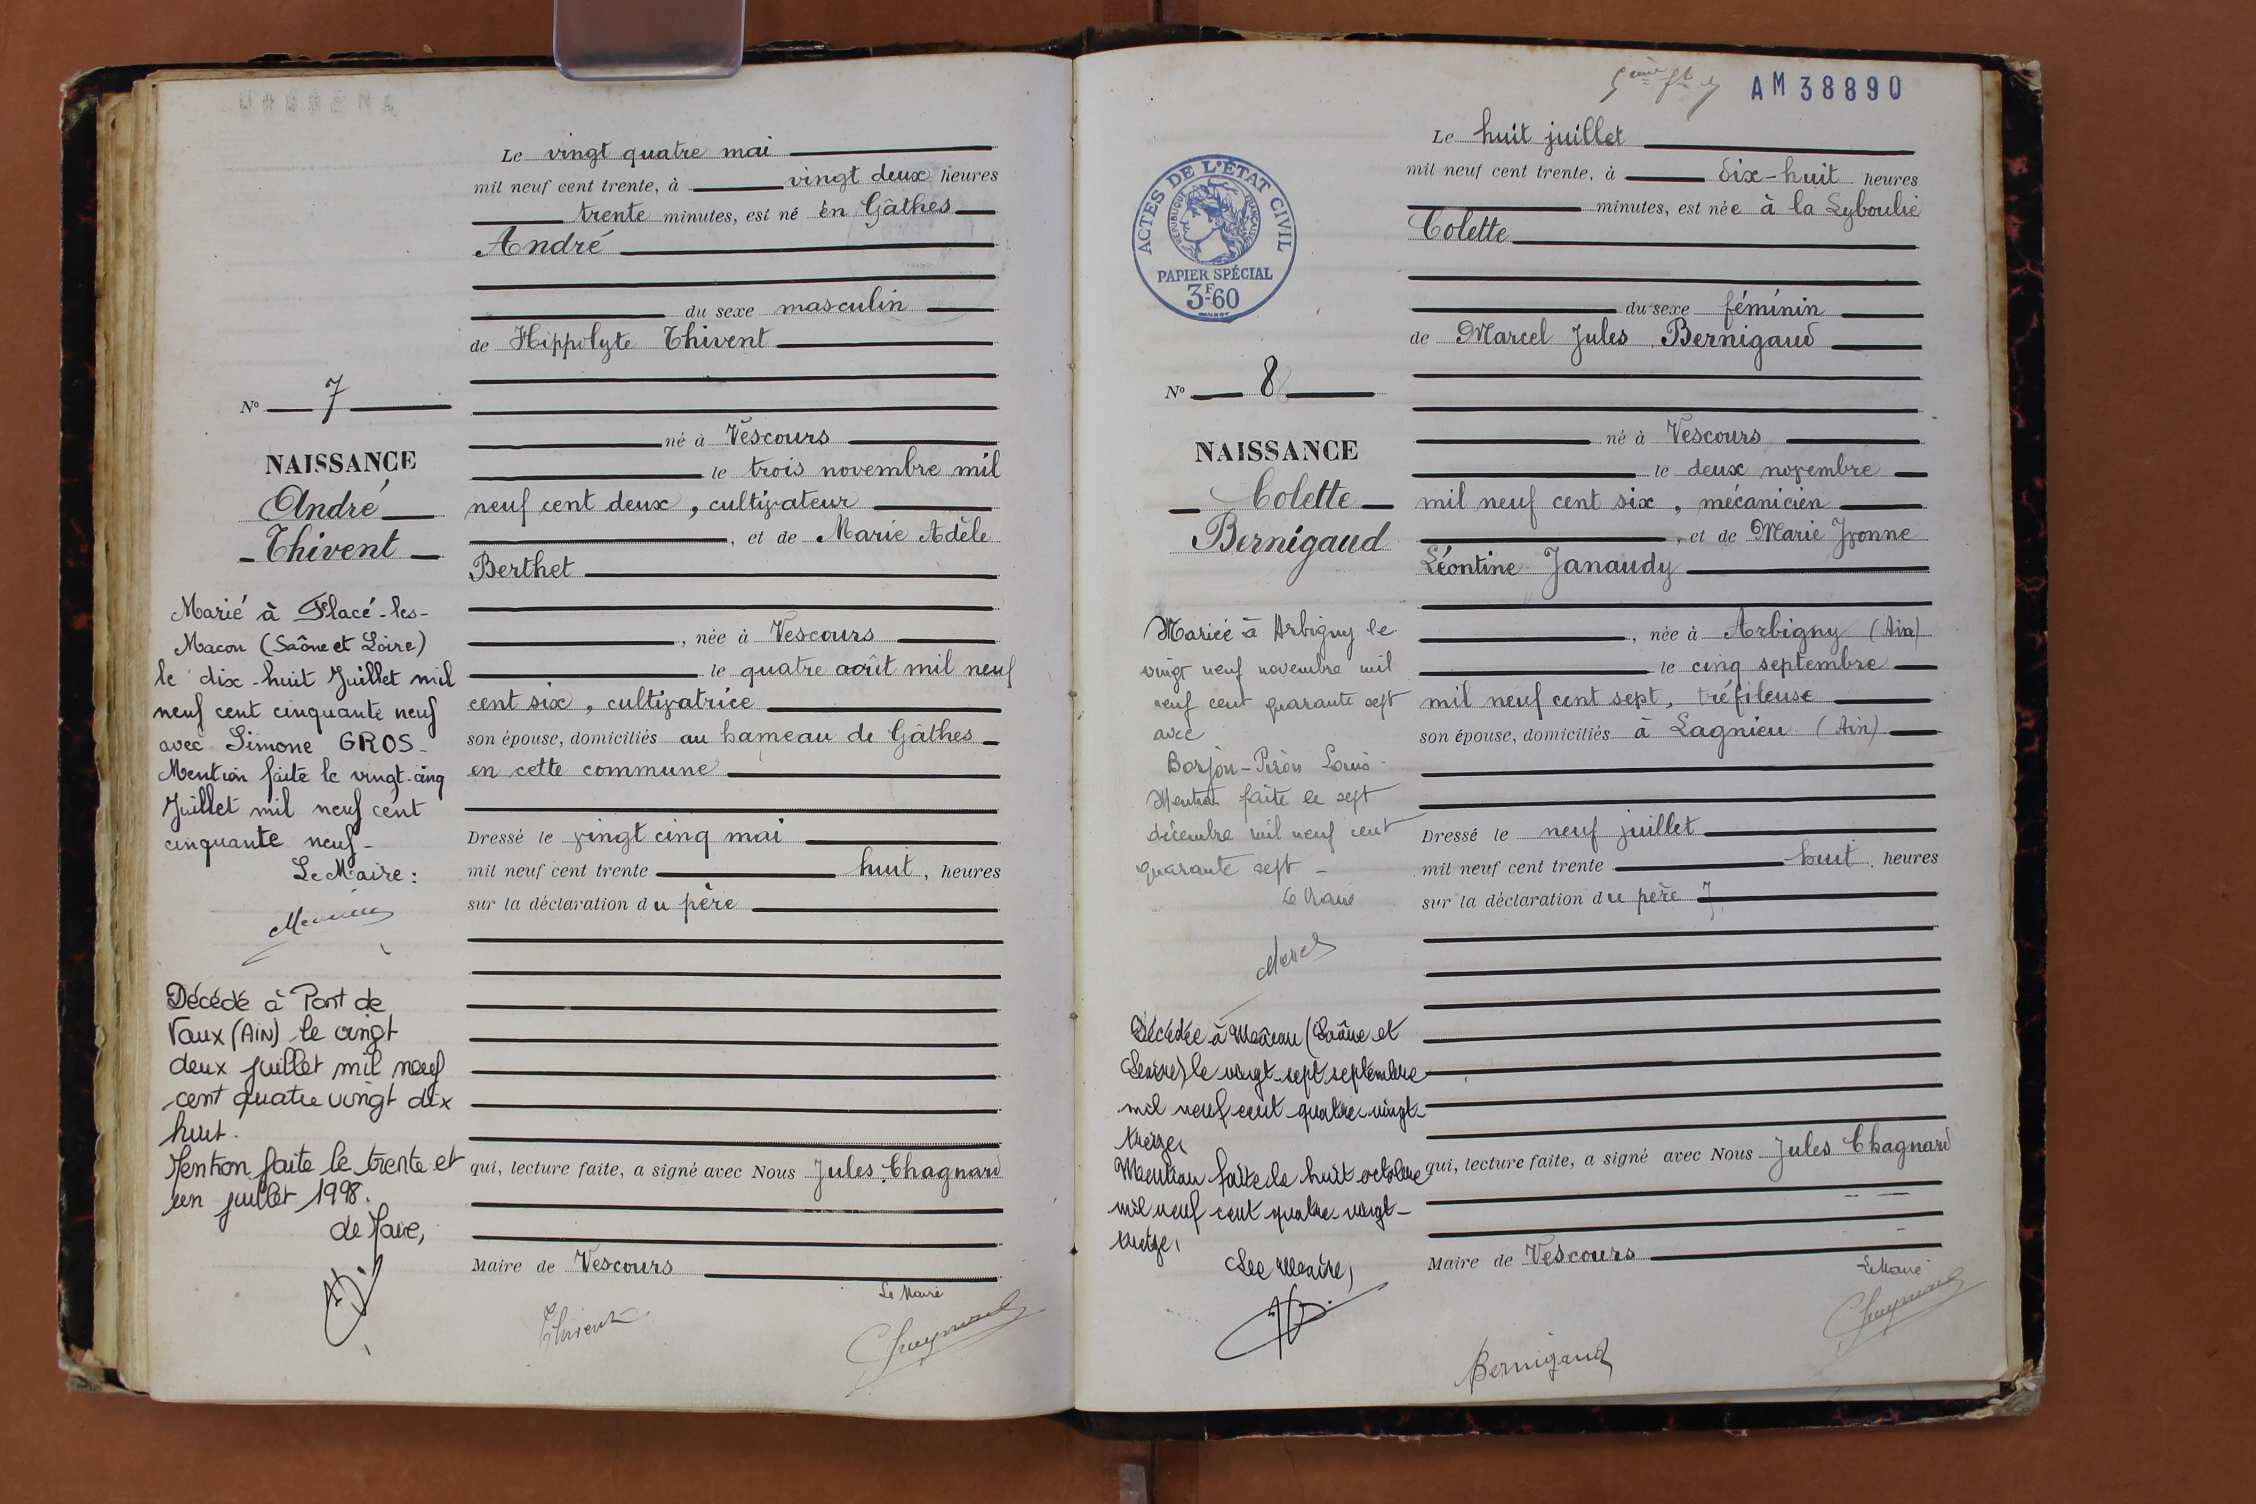 Le vingt quatre mai
mil neuf cent trente, à vingt deux heures
trente minutes, est né en Gâthes
André
du sexe masculin
de Hippolyte Thivent
né à Vescours
le trois novembre mil
neuf cent deux, cultivateur
, et de Marie Adèle
Berthet
, née à Vescours
le quatre août mil neuf
cent six, cultivatrice
son épouse, domiciliés au hameau de Gâthes
en cette commune
Dressé le vingt cinq mai
mil neuf cent trente huit, heures
sur la déclaration du père
qui, lecture faite, a signé avec Nous Jules Chagnard
Maire de Vescours
Le Maire
Thivent
Chagnard
No 7
NAISSANCE
André
Thivent
Marié à Flacé-les-
Macon (Saône et Loire)
le dix-huit Juillet mil
neuf cent cinquante neuf
avec Simone GROS-
Mention faite le vingt-cinq
Juillet mil neuf cent
cinquante neuf-
Le Maire:
Décédé à Pont de
Vaux (AIN) le vingt
deux juillet mil neuf
cent quatre vingt dix
huit.
Mention faite le trente et
un juillet 1998.
Le Maire,
AM38890
Le huit juillet
mil neuf cent trente, à dix-huit heures
minutes, est née à la Lyboulié
Colette
du sexe féminin
de Marcel Jules Bernigaud
né à Vescours
le deux novembre
mil neuf cent six, mécanicien
, et de Marie Yvonne
Léontine Janaudy
, née à Arbigny (Ain)
le cinq septembre
mil neuf cent sept, tréfileuse
son épouse, domiciliés à Lagnieu (Ain)
Dressé le neuf juillet
mil neuf cent trente huit, heures
sur la déclaration du père
qui, lecture faite, a signé avec Nous Jules Chagnard
Maire de Vescours
Le Maire
Bernigaud
Chagnard
ACTES DE L'ÉTAT CIVIL
RÉPUBLIQUE FRANÇAISE
PAPIER SPÉCIAL
3F60
No 8
NAISSANCE
Colette
Bernigaud
Mariée à Arbigny le
vingt neuf novembre mil
neuf cent quarante sept
avec
Borjon-Piron Louis-
Mention faite le sept
décembre mil neuf cent
quarante sept-
Le Maire
Décédée à Mâcon (Saône et
Loire) le vingt-sept septembre
mil neuf cent quatre-vingt-
treize,
Mention faite le huit octobre
mil neuf cent quatre-vingt-
treize,
Le Maire,